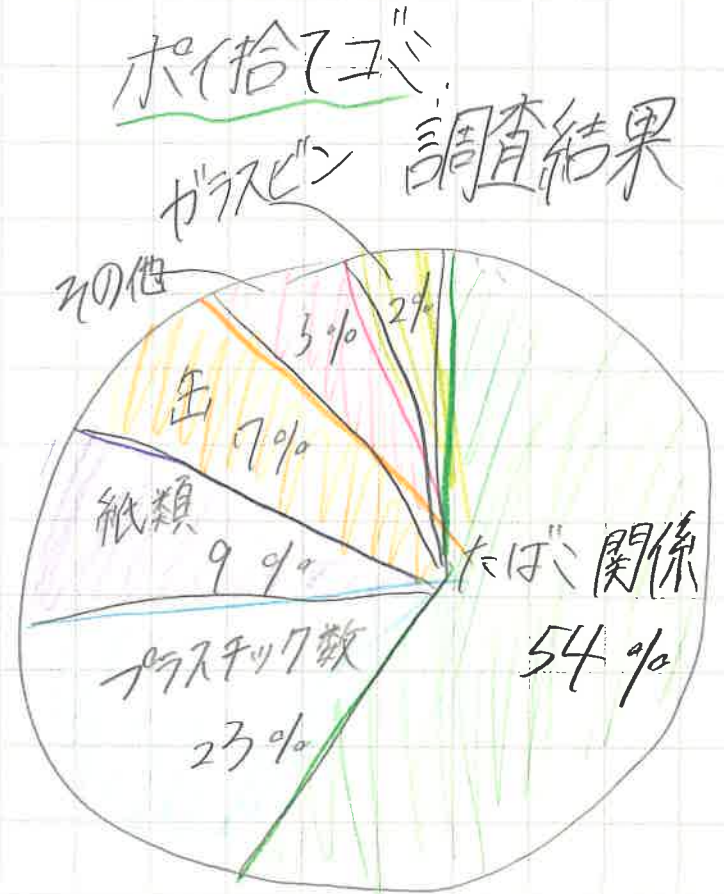 ポイ捨てゴミ
調査結果
ガラスビン
2%
その他
5%
缶
7%
紙類
9%
プラスチック数
23%
たばこ関係
54%